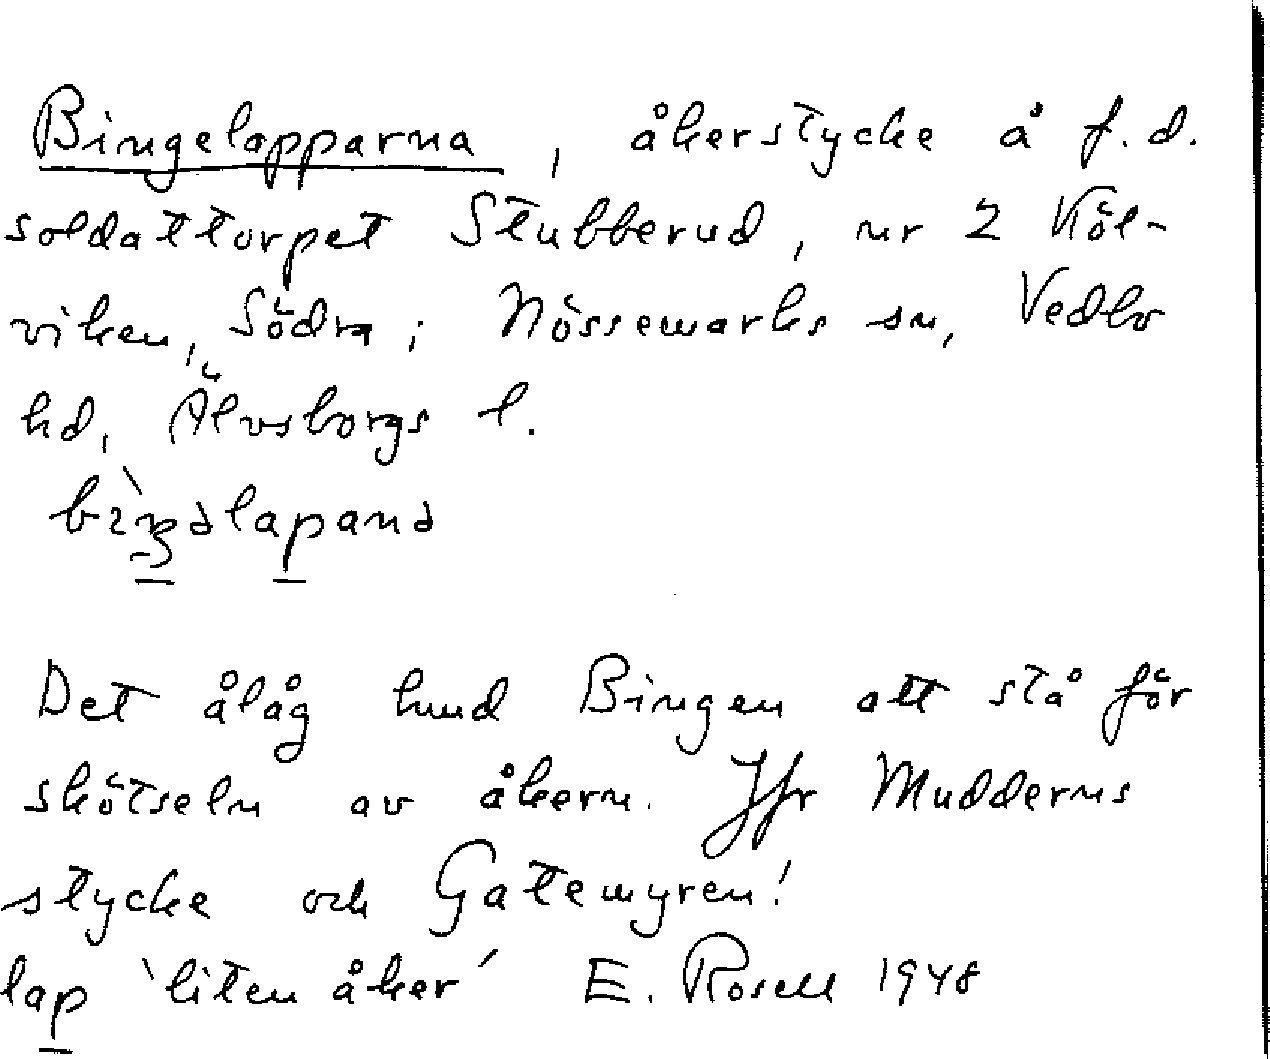 Bingelapparna, åkerstycke å f.d.
soldattorpet Stubberud, nr 2 Köl-
viken, Södra; Nössemarks sn, Vedbo
hd, Älvsborgs l.
Det ålåg hund Bingen att stå för
skötseln av åkern. Jfr Mudderns
stycke och Gatemyren!
lap 'liten åker' E. Rosell 1948